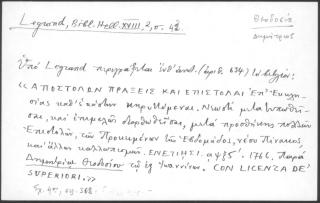 Legrand, Bibl. Hell. XVIII, 2, σ. 42.
Θεοδοσίου
Δημήτριος
Ὑπὸ Legrand περιγράφεται ἐνθ' ἀνωτ. (ἀριθ. 634) ἐκ
«ΑΠΟΣΤΟΛΩΝ ΠΡΑΞΕΙΣ ΚΑΙ ΕΠΙΣΤΟΛΑΙ Ἐπ' Ἐκκλη-
σίας καθ' ἑκάστην κηρυττόμεναι. Νεωστὶ μετατυπωθεῖ-
σαι, καὶ ἐπιμελῶς διορθωθεῖσαι, μετὰ προσθήκης πολλῶν
Ἐπιστολῶν, τῶν Προκειμένων τῆς Ἑβδομάδος, νέου Πίνακος,
καὶ ἄλλων καλλωπισμῶν. ΕΝΕΤΙΗΣΙ. αψξς΄. 1766. Παρὰ
Δημητρίῳ Θεοδοσίου τῷ ἐξ Ἰωαννίνων. CON LICENZA DE'
SUPERIORI.»